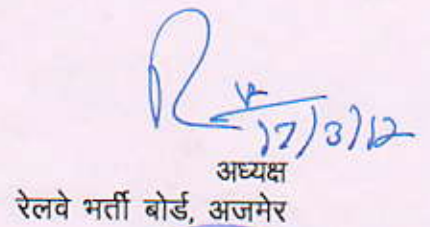 17/3/12
अध्यक्ष
रेलवे भर्ती बोर्ड, अजमेर